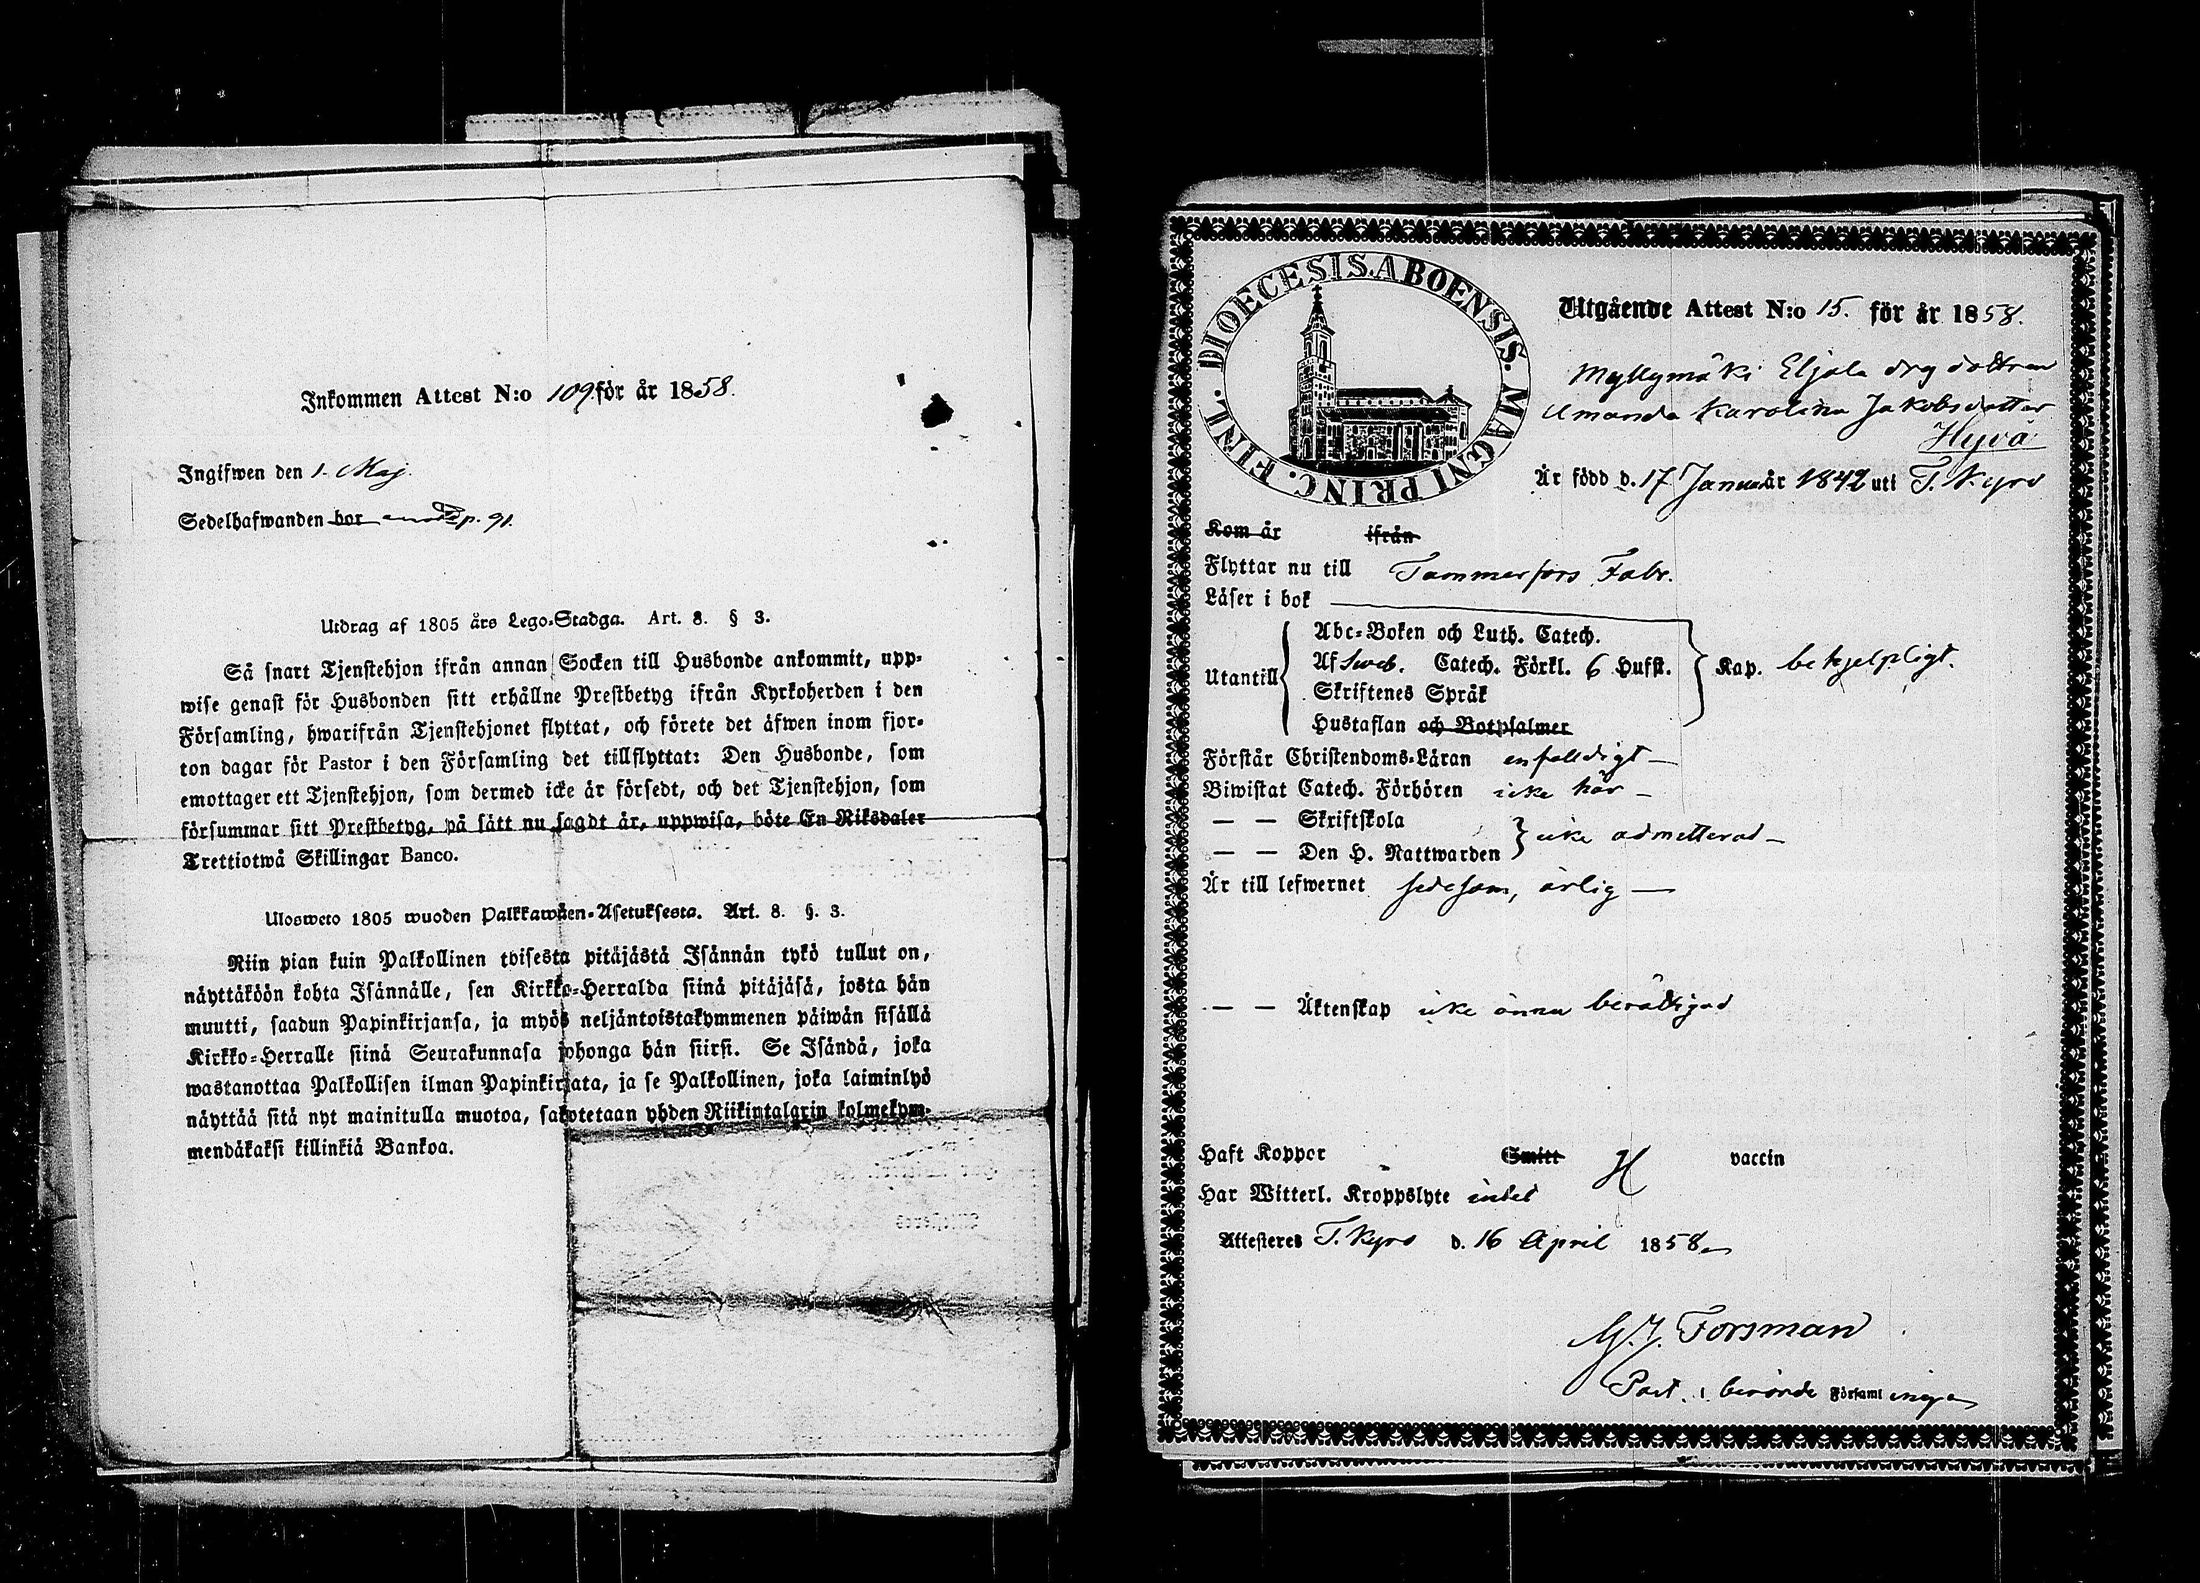 Inkommen Attest N:o 109 för år 1858.
Ingifwen den 1. Maj.
Sedelhafwanden bor p. 91.
Utdrag af 1805 års Lego-Stadga. Art. 8. § 3.
Så snart Tjenstehjon ifrån annan Socken till Husbonde ankommit, upp-
wise genast för Husbonden sitt erhållne Prestbetyg ifrån Kyrkoherden i den
Församling, hwarifrån Tjenstehjonet flyttat, och förete det äfwen inom fjor-
ton dagar för Pastor i den Församling det tillflyttat: Den Husbonde, som
emottager ett Tjenstehjon, som dermed icke är försedt, och det Tjenstehjon, som
försummar sitt Prestbetyg, på sätt nu sagdt är, uppwisa, böte En Riksdaler
Trettiotwå Skillingar Banco.
Ulosweto 1805 wuoden Palkkawäen-Asetuksesta. Art. 8. §. 3.
Niin pian kuin Palkollinen toisesta pitäjästä Isännän tykö tullut on,
näyttäköön kohta Isännälle, sen Kirkko-Herralda siinä pitäjäsä, josta hän
muutti, saadun Papinkirjansa, ja myös neljäntoistakymmenen päiwän sisällä
Kirkko-Herralle siinä Seurakunnasa johonga hän siirsi. Se Isändä, joka
wastanottaa Palkollisen ilman Papinkirjata, ja se Palkollinen, joka laiminlyö
näyttää sitä nyt mainitulla muotoa, sakotetaan yhden Riikintalarin kolmekym-
mendäkaksi killinkiä Bankoa.
DIOECESIS. ABOENSIS. MAGNI PRINC. FINL.
Utgående Attest N:o 15. för år 1858.
Myllymäki Eljala drg dottren
Amanda Karolina Jakobsdotter
Hyvä
Är född d. 17 Januar 1842 uti T. Kyro
Kom år ifrån
Flyttar nu till Tammerfors Fabr.
Läser i bok
Utantill
Abc-Boken och Luth. Catech.
Af Sweb. Catech. Förkl. 6 Hufst.
Skriftenes Språk
Hustaflan och Botpsalmer
Kap. behjelpligt.
Förstår Christendoms-Läran enfaldigt —
Biwistat Catech. Förhören icke här —
— — Skriftskola
— — Den H. Nattwarden
icke admitterad —
Är till lefwernet sedesam, ärlig —
— — Äktenskap icke ännu berättigad
Haft Koppor Smitt H vaccin
Har Witterl. Kroppslyte intet
Attesteres T. Kyro d. 16 April 1858
G. J. Forsman
Past. i berörde Församlingen